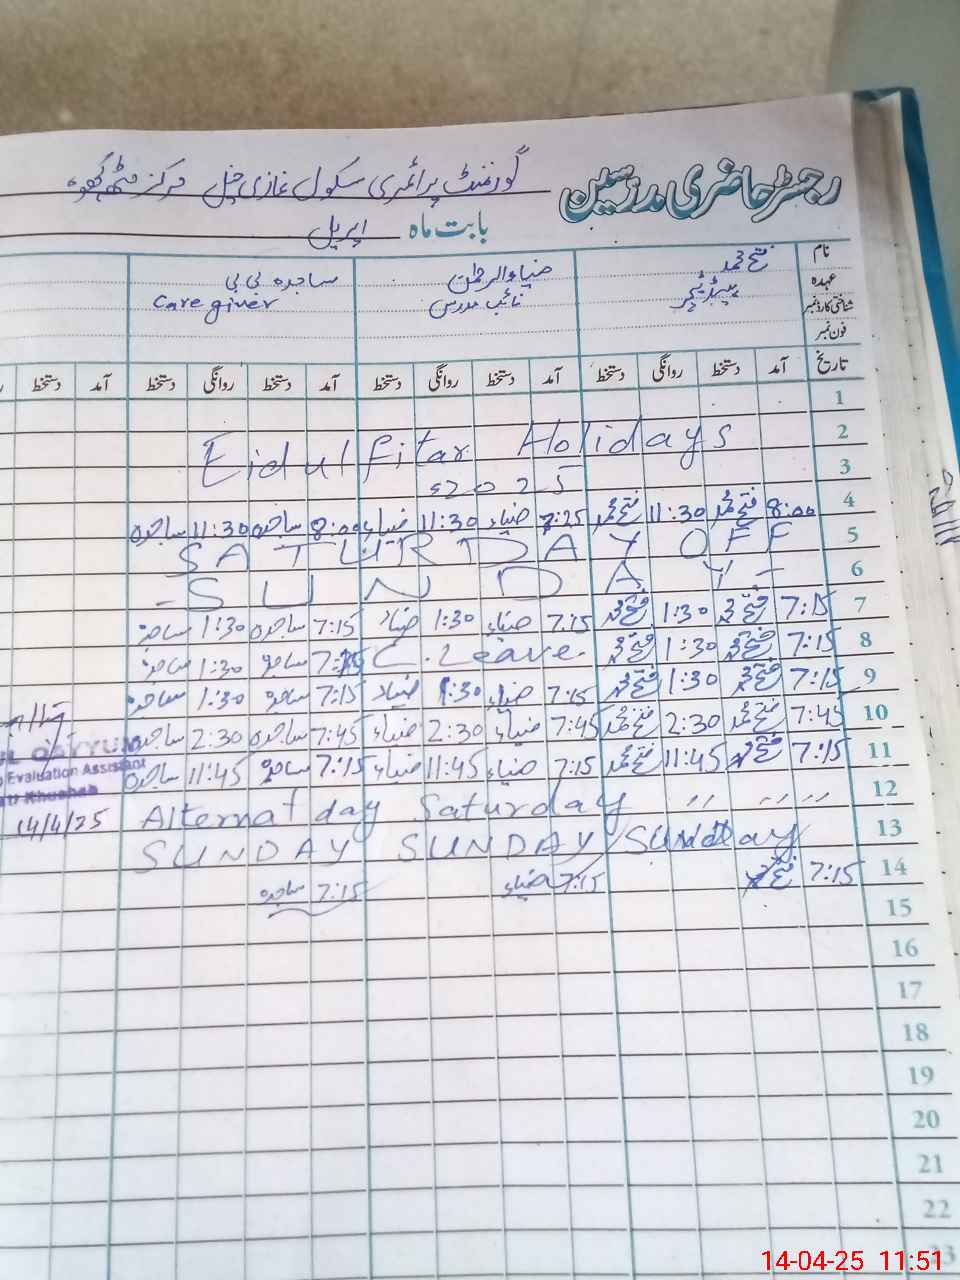 رجسٹر حاضری مدرسین گورنمنٹ پرائمری سکول غازی خیل مرکز مٹھہ کھوہ
بابت ماہ اپریل
نام فتح محمد ضیاء الرحمٰن ساجدہ بی بی
عہدہ ہیڈ ٹیچر نائب مدرس Care giver
شناختی کارڈ نمبر
فون نمبر
تاریخ آمد دستخط روانگی دستخط آمد دستخط روانگی دستخط آمد دستخط روانگی دستخط آمد دستخط
1
2 Eid ul Fitar Holidays
3 2025
4 8:00 فتح محمد 11:30 فتح محمد 7:25 ضیاء 11:30 ضیاء 8:00 ساجدہ 11:30 ساجدہ
5 SATURDAY OFF
6 - SUNDAY -
7 7:15 فتح محمد 1:30 فتح محمد 7:15 ضیاء 1:30 ضیاء 7:15 ساجدہ 1:30 ساجدہ
8 7:15 فتح محمد 1:30 فتح محمد C. Leave. 7:15 ساجدہ 1:30 ساجدہ
9 7:15 فتح محمد 1:30 فتح محمد 7:15 ضیاء 1:30 ضیاء 7:15 ساجدہ 1:30 ساجدہ
10 7:45 فتح محمد 2:30 فتح محمد 7:45 ضیاء 2:30 ضیاء 7:45 ساجدہ 2:30 ساجدہ
QAYYUM
11 7:15 فتح محمد 11:45 فتح محمد 7:15 ضیاء 11:45 ضیاء 7:15 ساجدہ 11:45 ساجدہ
Evaluation Assistant
Khushab
12 Alternat day Saturday " " " "
14/4/25
13 SUNDAY SUNDAY SUNDay
14 7:15 فتح محمد 7:15 ضیاء 7:15 ساجدہ
15
16
17
18
19
20
21
22
23
14-04-25 11:51